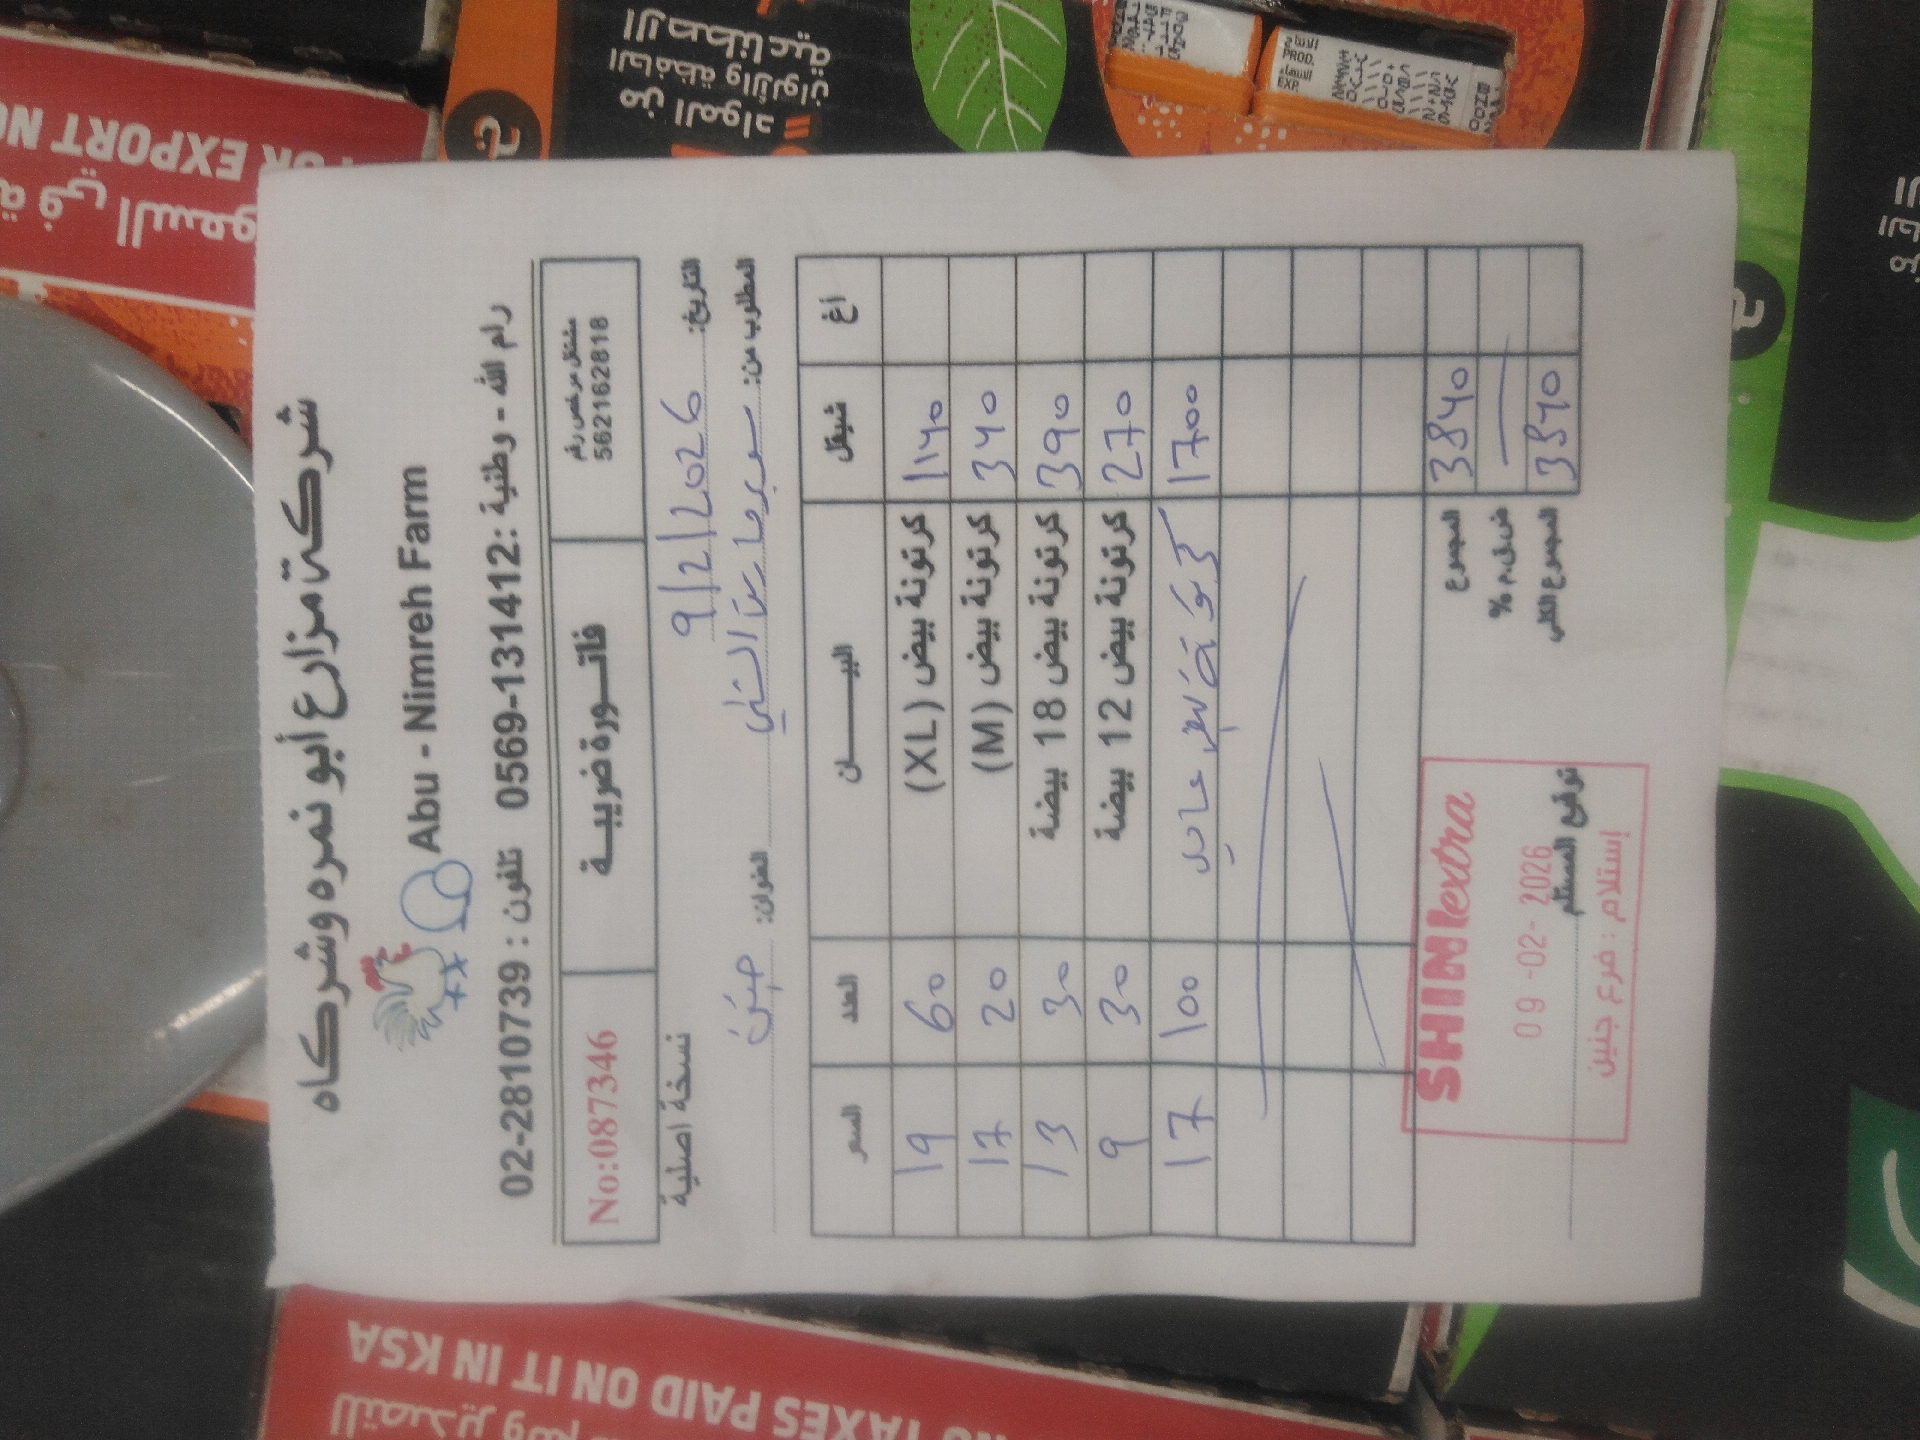 شركة مزارع أبو نمره وشركاه
Abu - Nimreh Farm
رام الله - وطنية : 0569-131412 تلفون : 02-2810739
مشتغل مرخص رقم
562162818
فاتـــورة ضريبيـــة
No:087346
التاريخ: 9/2/2026
نسخة اصلية
المطلوب من: سوبرماركت الشني
العنوان: جنين
أغ شيقل البيـــــــان العدد السعر
1140 كرتونة بيض (XL) 60 19
340 كرتونة بيض (M) 20 17
390 كرتونة بيض 18 بيضة 30 13
270 كرتونة بيض 12 بيضة 30 9
1700 كرتونة بيض 100 17
3840 المجموع
ض.ق.م %
3840 المجموع الكلي
توقيع المستلم
SHINI extra
09-02-2026
إستلام : فرع جنين
FOR EXPORT
في السعو
من المواد
الحافظة والألوان
الاصطناعية
الإنتاج
PROD.
الانتهاء
EXP.
TAXES PAID ON IT IN KSA
للتصدير